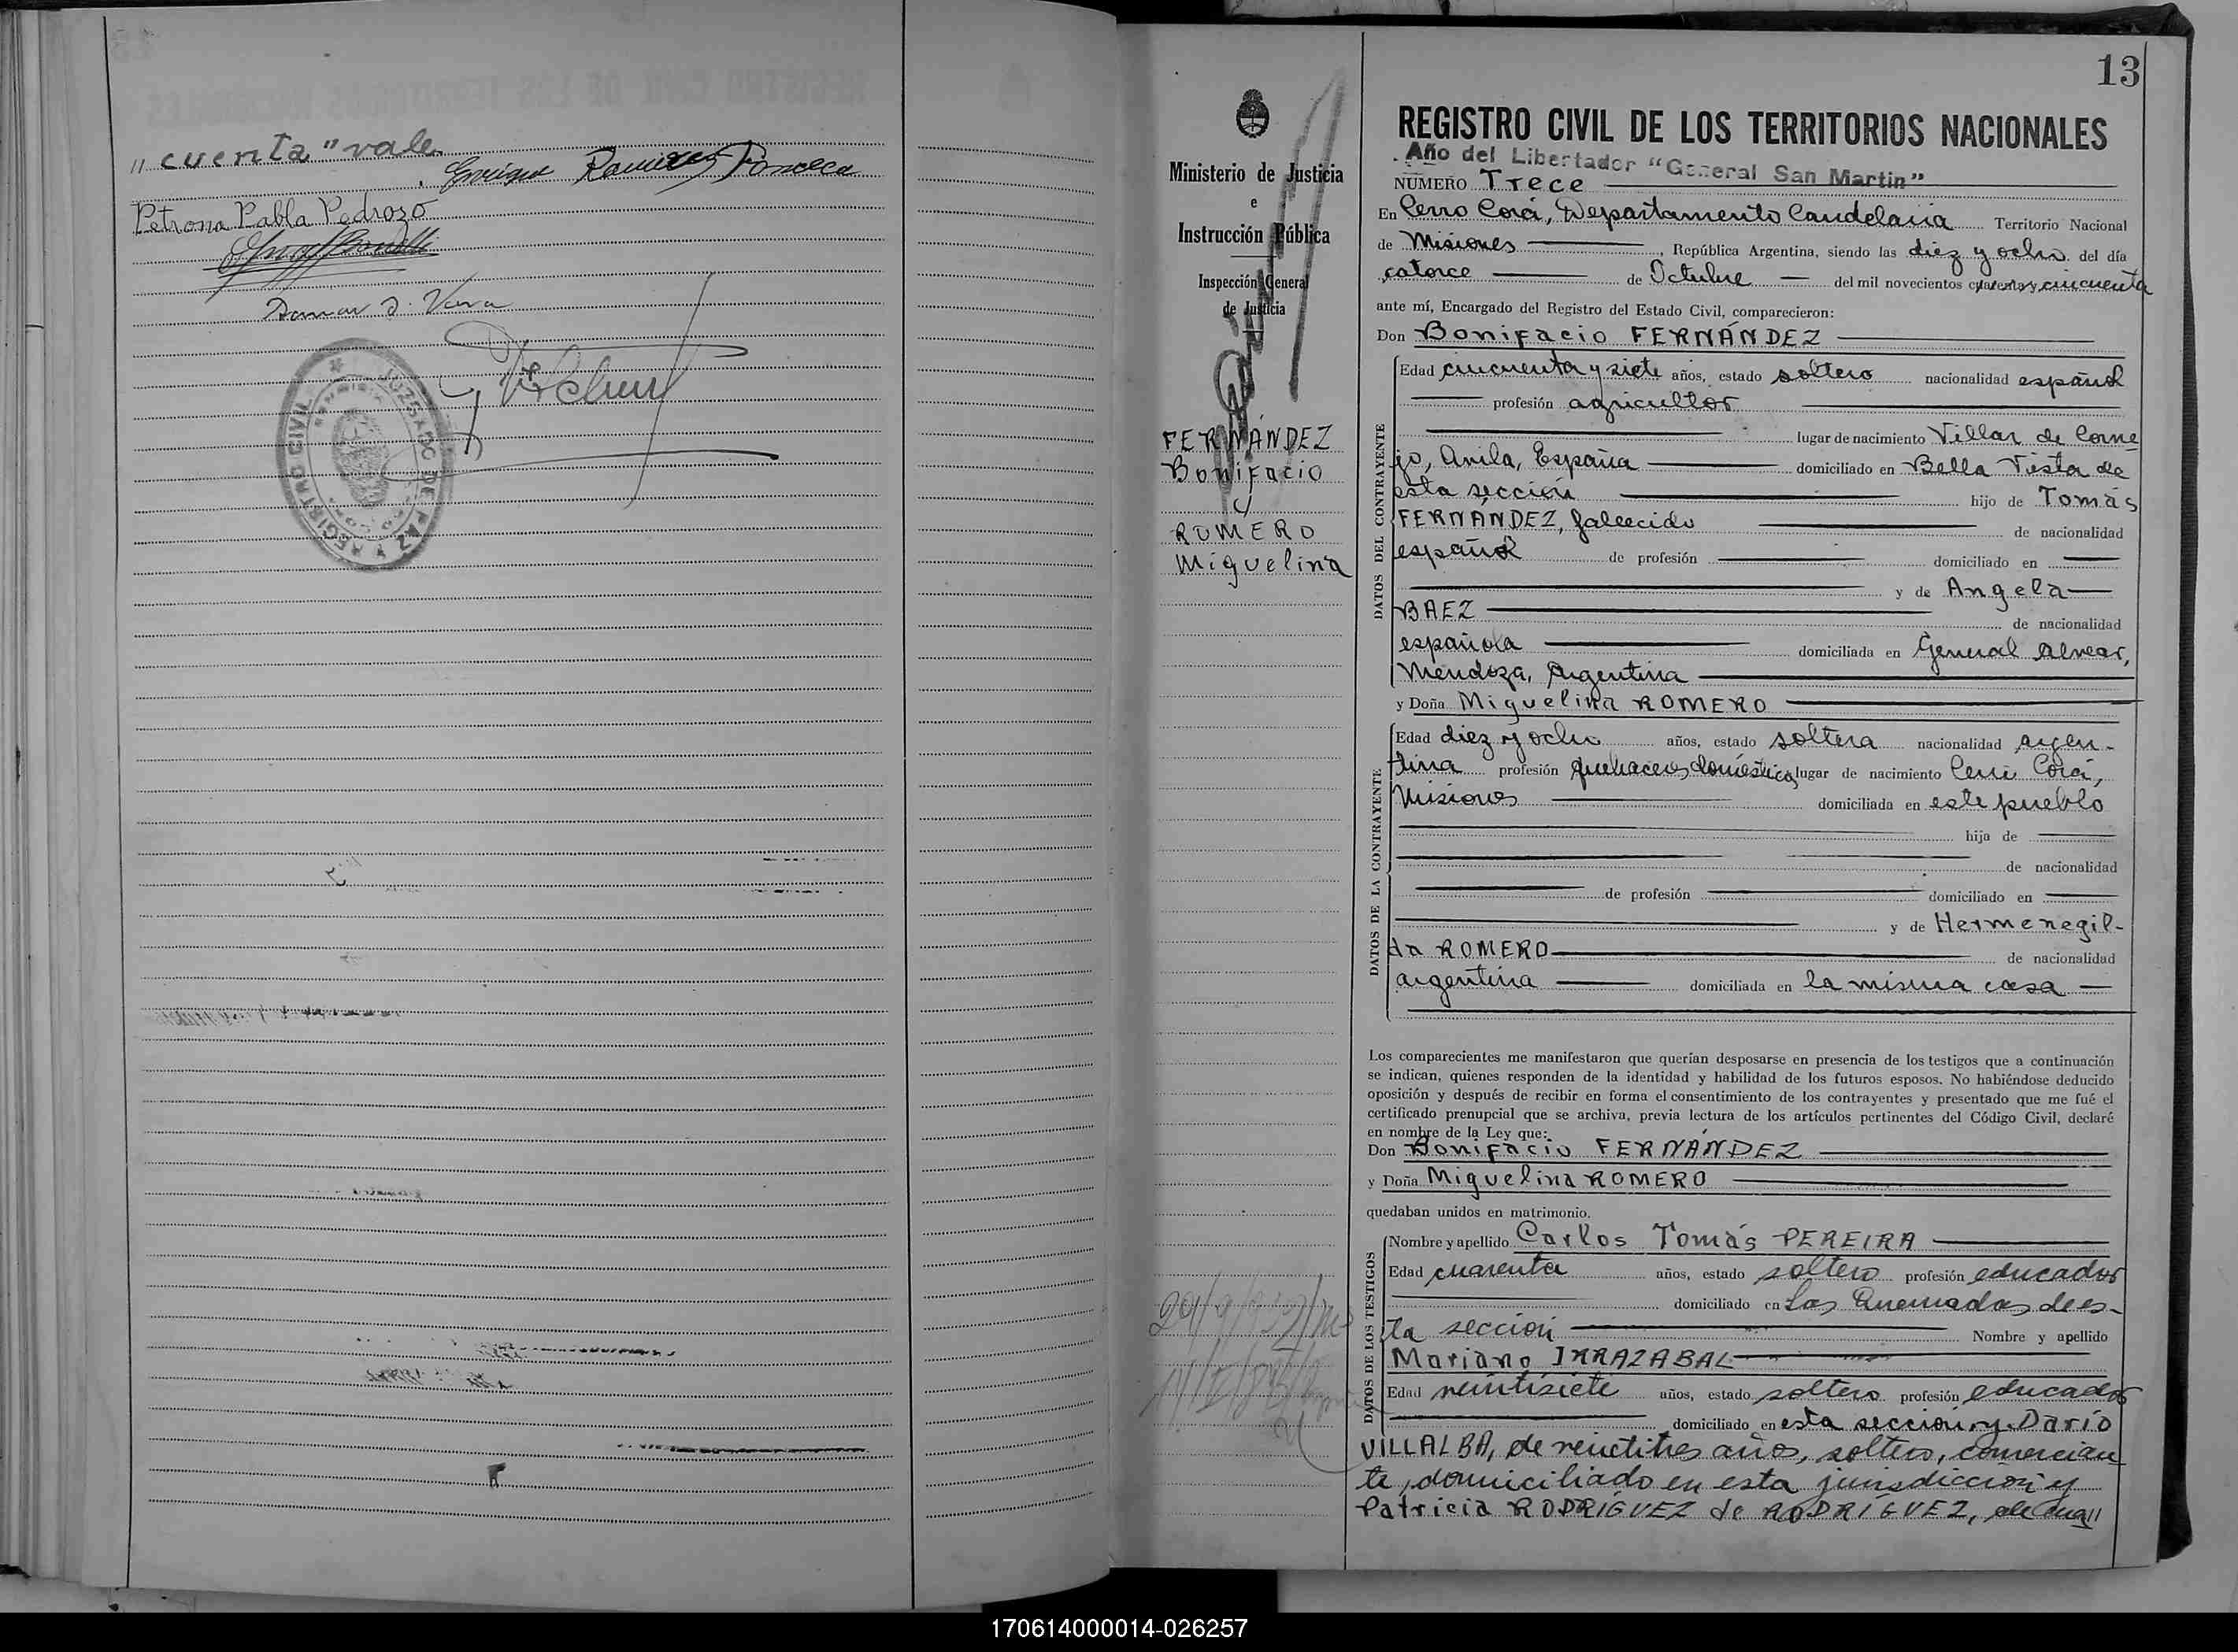 "cuenta" vale.
Enrique Ramirez Fonseca
Petrona Pabla Pedrozo
REGISTRO CIVIL
JUZGADO DE PAZ Y REGISTRO CIVIL
13
Ministerio de Justicia
e
Instrucción Pública
Inspección General
de Justicia
FERNÁNDEZ
Bonifacio
y
ROMERO
Miguelina
REGISTRO CIVIL DE LOS TERRITORIOS NACIONALES
Año del Libertador "General San Martin"
NÚMERO Trece
En Cerro Corá, Departamento Candelaria Territorio Nacional
de Misiones, República Argentina, siendo las diez y ocho del día
catorce de Octubre del mil novecientos cuarenta y cincuenta
ante mí, Encargado del Registro del Estado Civil, comparecieron:
Don Bonifacio FERNÁNDEZ
DATOS DEL CONTRAYENTE
Edad cincuenta y siete años, estado soltero nacionalidad español
profesión agricultor
lugar de nacimiento Villar de Corne
jo, Avila, España domiciliado en Bella Vista de
esta sección hijo de Tomás
FERNÁNDEZ, fallecido de nacionalidad
español de profesión domiciliado en
y de Angela
BAEZ de nacionalidad
española domiciliada en General Alvear,
Mendoza, Argentina
y Doña Miguelina ROMERO
DATOS DE LA CONTRAYENTE
Edad diez y ocho años, estado soltera nacionalidad argen-
tina profesión quehaceres domésticos lugar de nacimiento Cerro Corá,
Misiones domiciliada en este pueblo
hija de
de nacionalidad
de profesión domiciliado en
y de Hermenegil-
da ROMERO de nacionalidad
argentina domiciliada en la misma casa
Los comparecientes me manifestaron que querían desposarse en presencia de los testigos que a continuación
se indican, quienes responden de la identidad y habilidad de los futuros esposos. No habiéndose deducido
oposición y después de recibir en forma el consentimiento de los contrayentes y presentado que me fué el
certificado prenupcial que se archiva, previa lectura de los artículos pertinentes del Código Civil, declaré
en nombre de la Ley que:
Don Bonifacio FERNÁNDEZ
y Doña Miguelina ROMERO
quedaban unidos en matrimonio.
DATOS DE LOS TESTIGOS
Nombre y apellido Carlos Tomás PEREIRA
Edad cuarenta años, estado soltero profesión educador
domiciliado en Las Quemadas de es-
ta sección Nombre y apellido
Mariano IRRAZABAL
Edad veintisiete años, estado soltero profesión educador
domiciliado en esta sección y Darío
VILLALBA, de veintitres años, soltero, comercian
te, domiciliado en esta jurisdicción y
Patricia RODRÍGUEZ de RODRÍGUEZ, de cua//
170614000014-026257